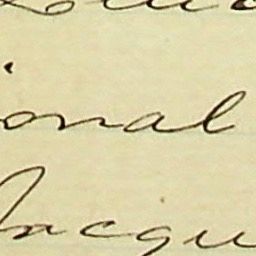 ional
Jacqu